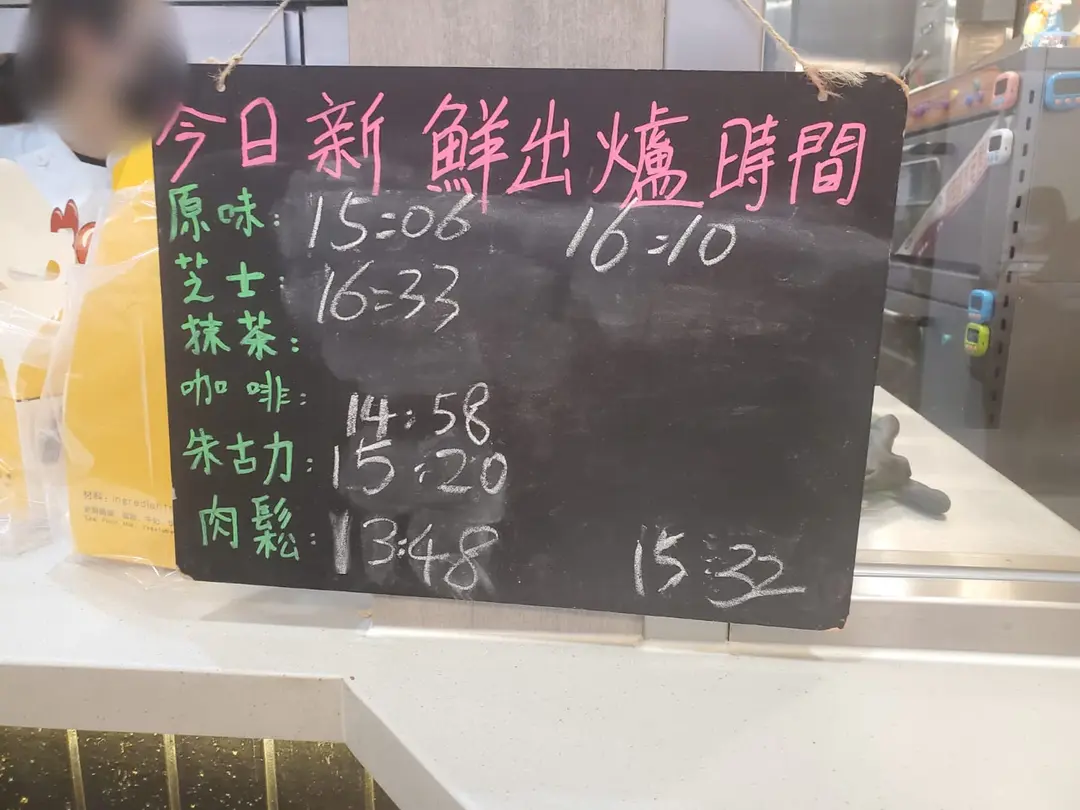 今日新鮮出爐時間
原味: 15:06 16:10
芝士: 16:33
抹茶:
咖啡: 14:58
朱古力: 15:20
肉鬆: 13:48 15:32